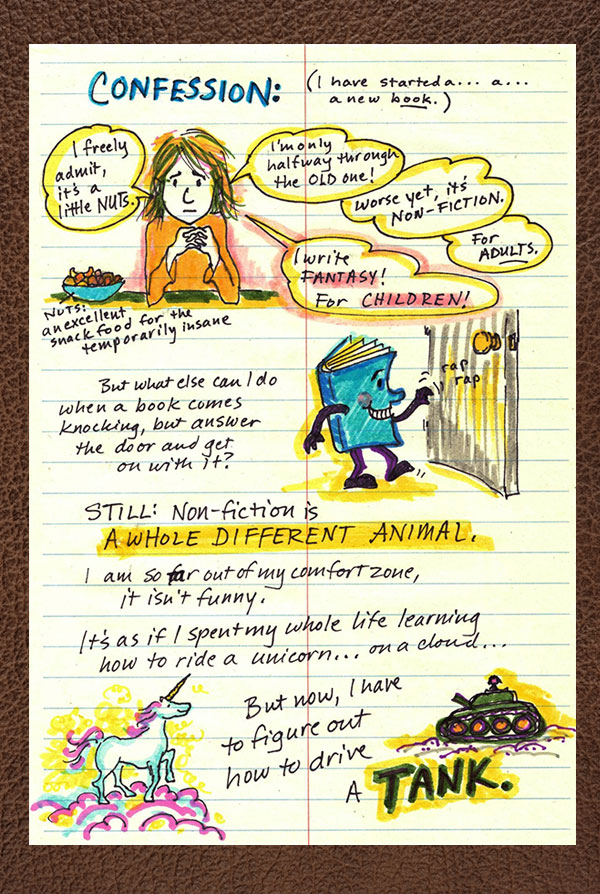 CONFESSION:
(I have started a... a...
a new book.)
I freely
admit,
it's a
little NUTS.
I'm only
halfway through
the OLD one!
worse yet, it's
NON-FICTION.
For
ADULTS.
I write
FANTASY!
For CHILDREN!
NUTS:
an excellent
snack food for the
temporarily insane
rap
rap
But what else can I do
when a book comes
knocking, but answer
the door and get
on with it?
STILL: Non-fiction is
A WHOLE DIFFERENT ANIMAL.
I am so far out of my comfort zone,
it isn't funny.
It's as if I spent my whole life learning
how to ride a unicorn... on a cloud...
But now, I have
to figure out
how to drive
A TANK.